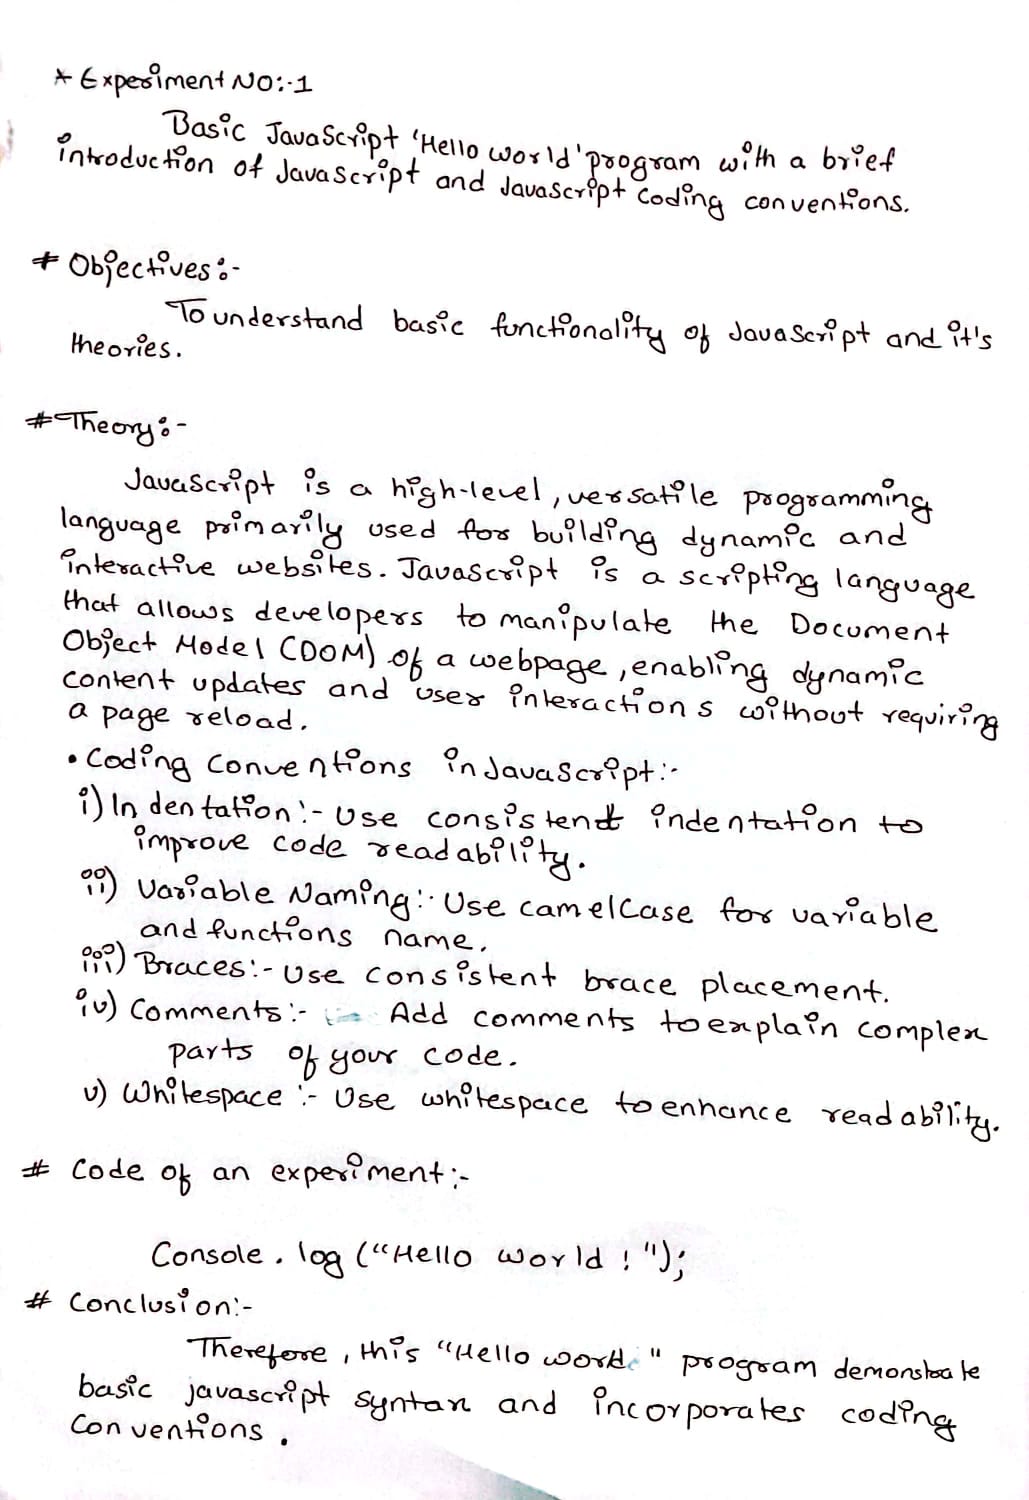 * Experiment NO:-1
Basic JavaScript 'Hello world' program with a brief
introduction of JavaScript and JavaScript Coding conventions.
# Objectives:-
To understand basic functionality of JavaScript and it's
theories.
# Theory:-
JavaScript is a high-level, versatile programming
language primarily used for building dynamic and
interactive websites. JavaScript is a scripting language
that allows developers to manipulate the Document
Object Model (DOM) of a webpage, enabling dynamic
content updates and user interactions without requiring
a page reload.
• Coding Conventions in JavaScript:-
i) Indentation:- Use consistent indentation to
improve code readability.
ii) Variable Naming:- Use camelCase for variable
and functions name.
iii) Braces:- Use consistent brace placement.
iv) Comments:- Add comments to explain complex
parts of your code.
v) Whitespace:- Use whitespace to enhance readability.
# Code of an experiment:-
Console.log ("Hello world!");
# Conclusion:-
Therefore, this "Hello world" program demonstrate
basic javascript syntax and incorporates coding
Conventions.